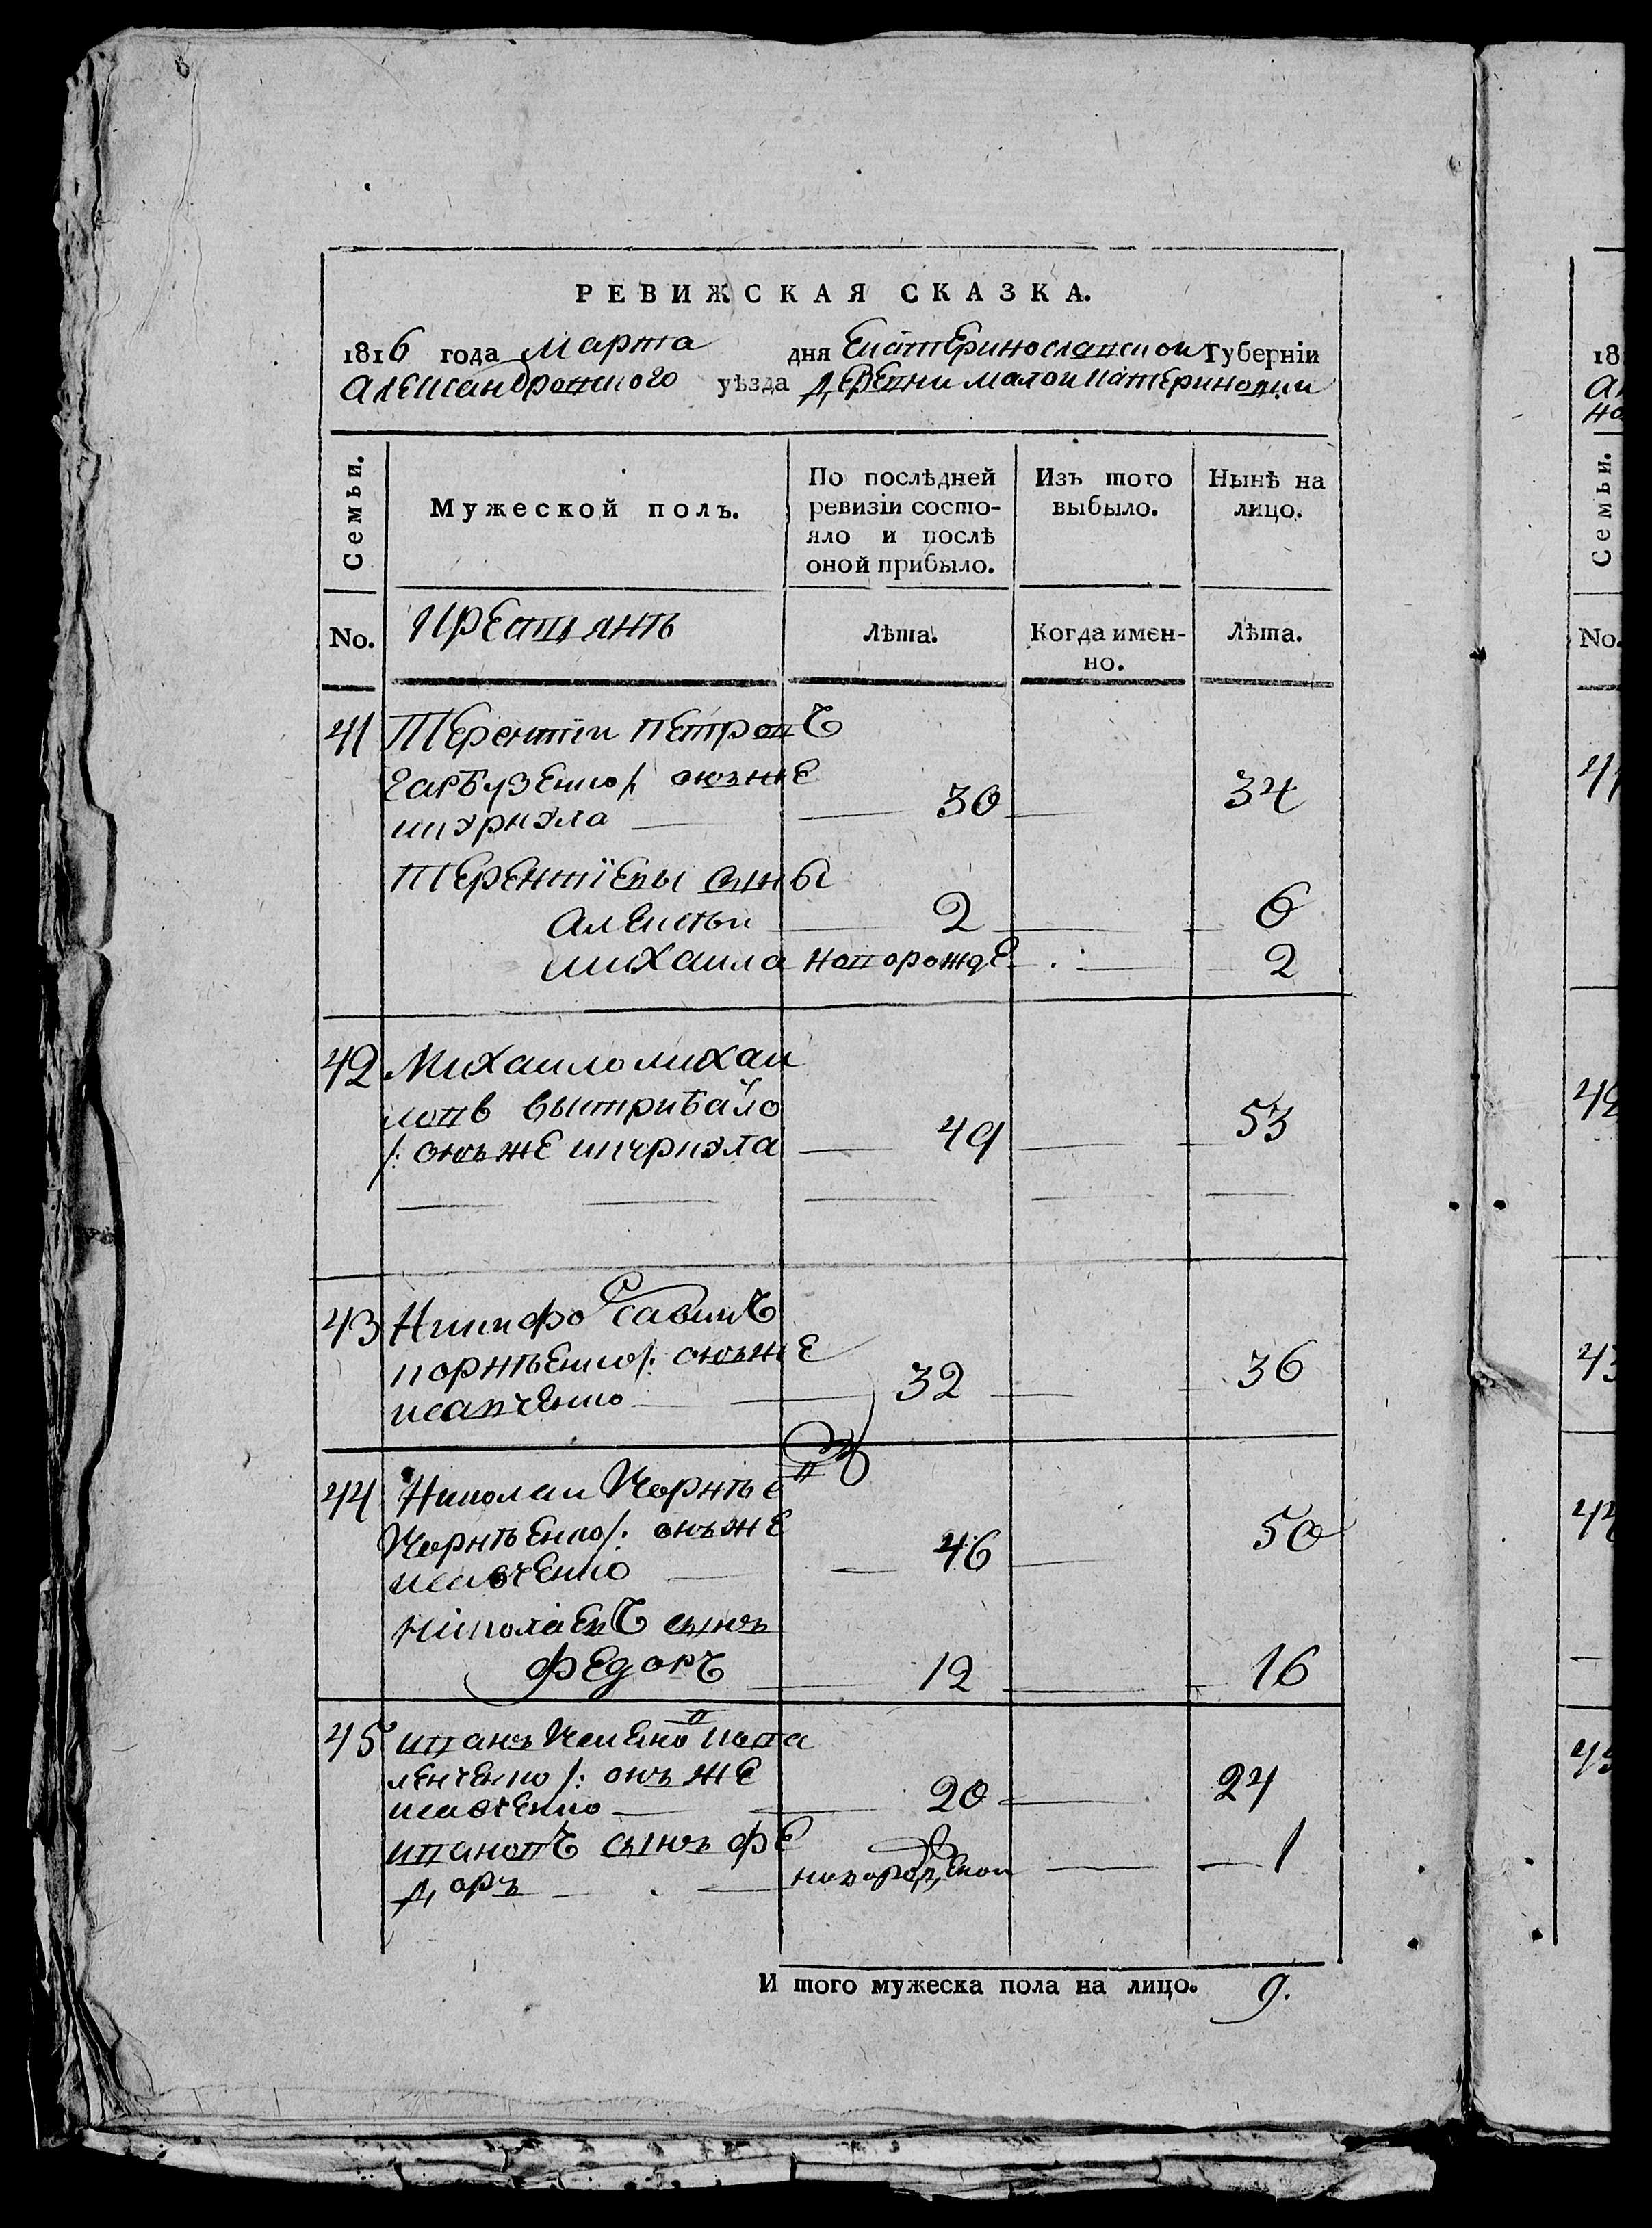 РЕВИЖСКАЯ СКАЗКА.
1816 года Марта дня Екатеринославской Губерніи
Александровского уѣзда деревни малой катериновки
Семьи.
Мужеской полъ.
По послѣдней ревизіи состо-яло и послѣ оной прибыло.
Изъ того выбыло.
Нынѣ на лицо.
No. крестьянъ Лѣта. Когда имен-но. Лѣта.
41 Терентіи Петровъ
гарбузенко /: онъже
30 34
Терентіевы сыны
алексѣи 2 6
михаила новорожде 2
42 Михаило михаи
ловъ вытрибайло
/: онъ же 49 53
43 Никифо р савинъ
корнѣенко /: онъже
исавченко 32 36
44 Николаи Корнѣе в
Корнѣенко /: онъже
исавченко 46 50
Николаевъ сынъ
Федоръ 12 16
45 иванъ
ленченко /: онъ же
исавченко 20 24
ивановъ сынъ фе
доръ новорожденои 1
И того мужеска пола на лицо. 9.
18
Семьи.
No.
41
42
43
44
45